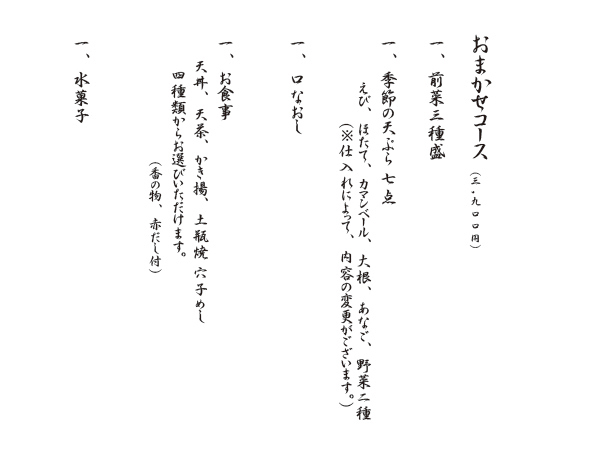 おまかせコース（三・九〇〇円）
一、前菜三種盛
一、季節の天ぷら 七点
えび、ほたて、カマンベール、大根、あなご、野菜二種
（※仕入れによって、内容の変更がございます。）
一、口なおし
一、お食事
天丼、天茶、かき揚、土瓶焼穴子めし
四種類からお選びいただけます。
（香の物、赤だし付）
一、水菓子